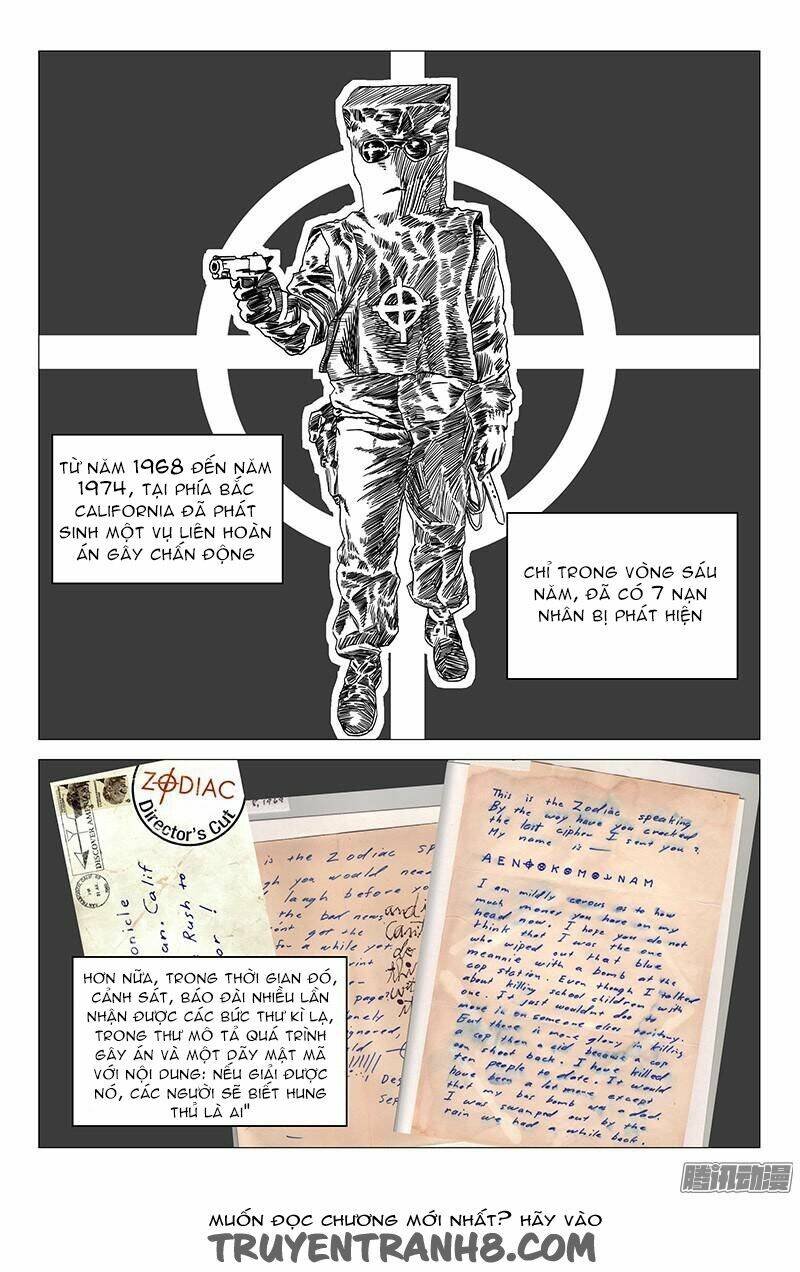 TỪ NĂM 1968 ĐẾN NĂM
1974, TẠI PHÍA BẮC
CALIFORNIA ĐÃ PHÁT
SINH MỘT VỤ LIÊN HOÀN
ÁN GÂY CHẤN ĐỘNG
CHỈ TRONG VÒNG SÁU
NĂM, ĐÃ CÓ 7 NẠN
NHÂN BỊ PHÁT HIỆN
ZODIAC
Director's Cut
DISCOVER AMERICA
onicle
an. Calif
Rush to
or!
is the Zodiac sp
gh you would need
laugh before yo
the bad news
ont got the
for a while yet
and
cant
do
this
with
This is the Zodiac speaking
By the way have you cracked
the last cipher I sent you?
My name is —
I am mildly cerous as to how
much money you have on my
head now. I hope you do not
think that I was the one
who wiped out that blue
meannie with a bomb at the
cop station. Even though I talked
about killing school children with
one. It just wouldnt do to
move in on someone elses teritory.
But there is more glory in killing
a cop then a cid because a cop
can shoot back. I have killed
ten people to date. It would
have been a lot more except
that my bus bomb was a dud.
I was swamped out by the
rain we had a while back.
HƠN NỮA, TRONG THỜI GIAN ĐÓ,
CẢNH SÁT, BÁO ĐÀI NHIỀU LẦN
NHẬN ĐƯỢC CÁC BỨC THƯ KÌ LẠ,
TRONG THƯ MÔ TẢ QUÁ TRÌNH
GÂY ÁN VÀ MỘT DÃY MẬT MÃ
VỚI NỘI DUNG: NẾU GIẢI ĐƯỢC
NÓ, CÁC NGƯỜI SẼ BIẾT HUNG
THỦ LÀ AI"
腾讯动漫
MUỐN ĐỌC CHƯƠNG MỚI NHẤT? HÃY VÀO
TRUYENTRANH8.COM